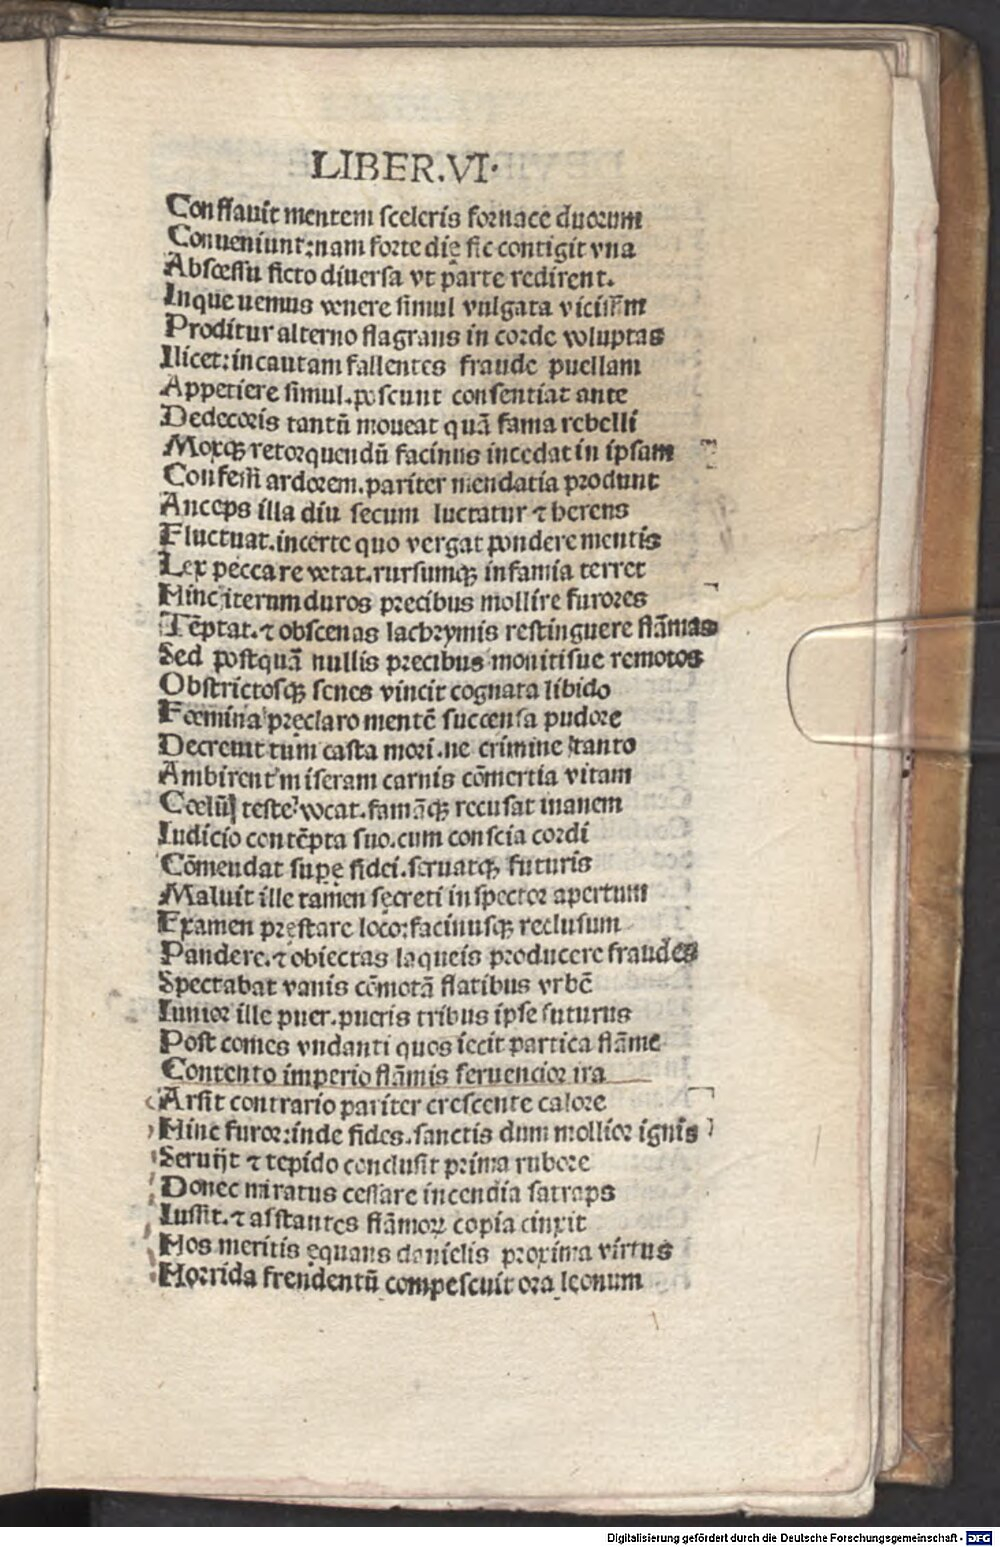 LIBER.VI·
Conflauit mentem sceleris fornace duorum
Conueniunt:nam forte die sic contigit vna
Abscessu ficto diuersa vt parte redirent.
Inque uemus venere simul vulgata vicissim
Proditur alterno flagrans in corde voluptas
Ilicet:incautam fallentes fraude puellam
Appetiere simul.poscunt consentiat ante
Dedecoris tantũ moueat quã fama rebelli
Moxqꝫ retorquendũ facinus incedat in ipsam
Confessi ardorem.pariter mendatia produnt
Anceps illa diu secum luctatur ⁊ herens
Fluctuat.incerte quo vergat pondere mentis
Lex peccare vetat.rursumqꝫ infamia terret
Hinc iterum duros precibus mollire furores
Tẽptat.⁊ obscenas lachrymis restinguere flãmas
Sed postquã nullis precibus monitisue remotos
Obstrictosqꝫ senes vincit cognata libido
Foemina pręclaro mentẽ succensa pudore
Decreuit tum casta mori.ne crimine tanto
Ambirent miseram carnis cõmertia vitam
Coelũ teste vocat.famãqꝫ recusat inanem
Iudicio contẽpta suo.cum conscia cordi
Cõmendat supę fidei.seruatqꝫ futuris
Maluit ille tamen sęcreti inspector apertum
Examen pręstare loco:facinusqꝫ reclusum
Pandere.⁊ obiectas laqueis producere fraudes
Spectabat vanis cõmotã flatibus vrbẽ
Iunior ille puer.pueris tribus ipse futurus
Post comes vndanti quos iecit partica flãme
Contento imperio flãmis feruencior ira
Arsit contrario pariter crescente calore
Hinc furor:inde fides.sanctis dum mollior ignis
Seruijt ⁊ tepido conclusit prima rubore
Donec miratus cessare incendia satraps
Iussit.⁊ asstantes flãmoꝝ copia cinxit
Hos meritis ęquans danielis proxima virtus
Horrida frendentũ compescuit ora leonum
Digitalisierung gefördert durch die Deutsche Forschungsgemeinschaft - DFG